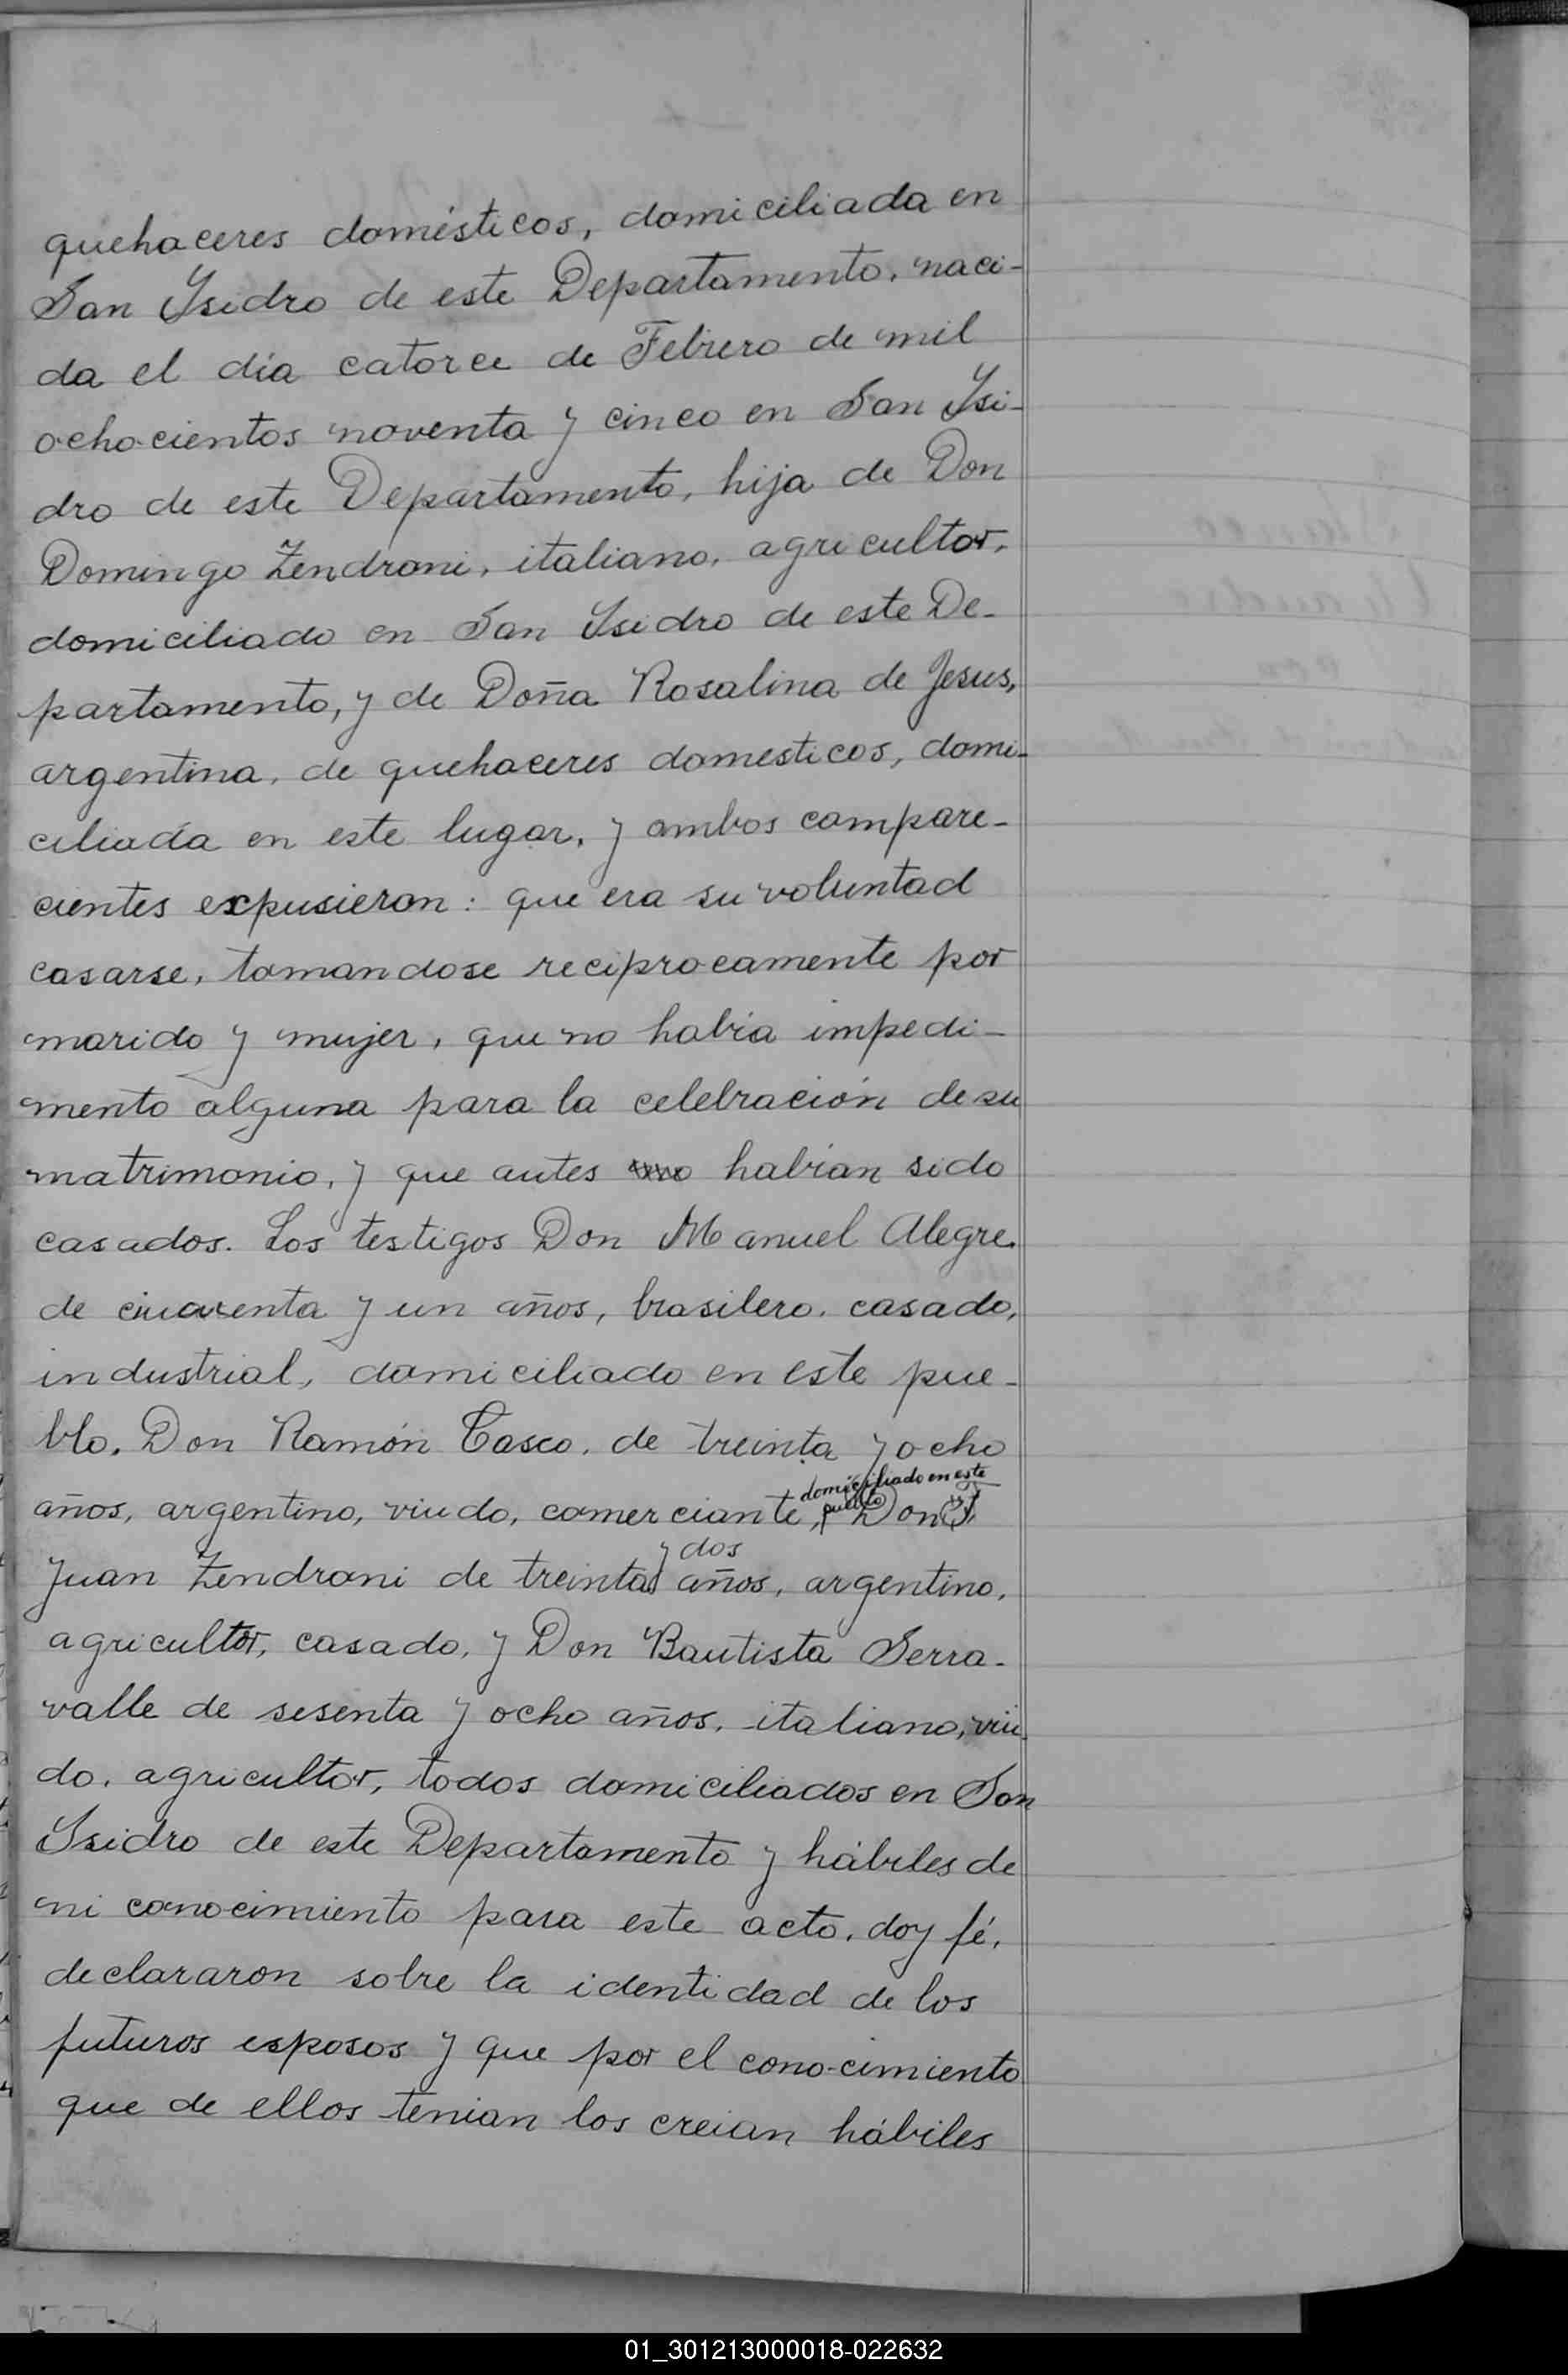 quehaceres domésticos, domiciliada en
San Ysidro de este Departamento, naci-
da el día catorce de Febrero de mil
ochocientos noventa y cinco en San Ysi-
dro de este Departamento, hija de Don
Domingo Zendroni, italiano, agricultor,
domiciliado en San Ysidro de este De-
partamento, y de Doña Rosalina de Jesus,
argentina, de quehaceres domesticos, domi-
ciliada en este lugar, y ambos compare-
cientes expusieron: que era su voluntad
casarse, tomandose reciprocamente por
marido y mujer, que no había impedi-
mento alguna para la celebración de su
matrimonio, y que antes no habían sido
casados. Los testigos Don Manuel Alegre
de cuarenta y un años, brasilero, casado,
industrial, domiciliado en este pue-
blo, Don Ramón Casco, de treinta y ocho
domiciliado en este
pueblo
años, argentino, viudo, comerciante, Don
y dos
Juan Zendroni de treinta años, argentino,
agricultor, casado, y Don Bautista Serra-
valle de sesenta y ocho años, italiano, viu-
do, agricultor, todos domiciliados en San
Ysidro de este Departamento y hábiles de
mi conocimiento para este acto, doy fé,
declararon sobre la identidad de los
futuros esposos y que por el conocimiento
que de ellos tenian los creian hábiles
01_301213000018-022632